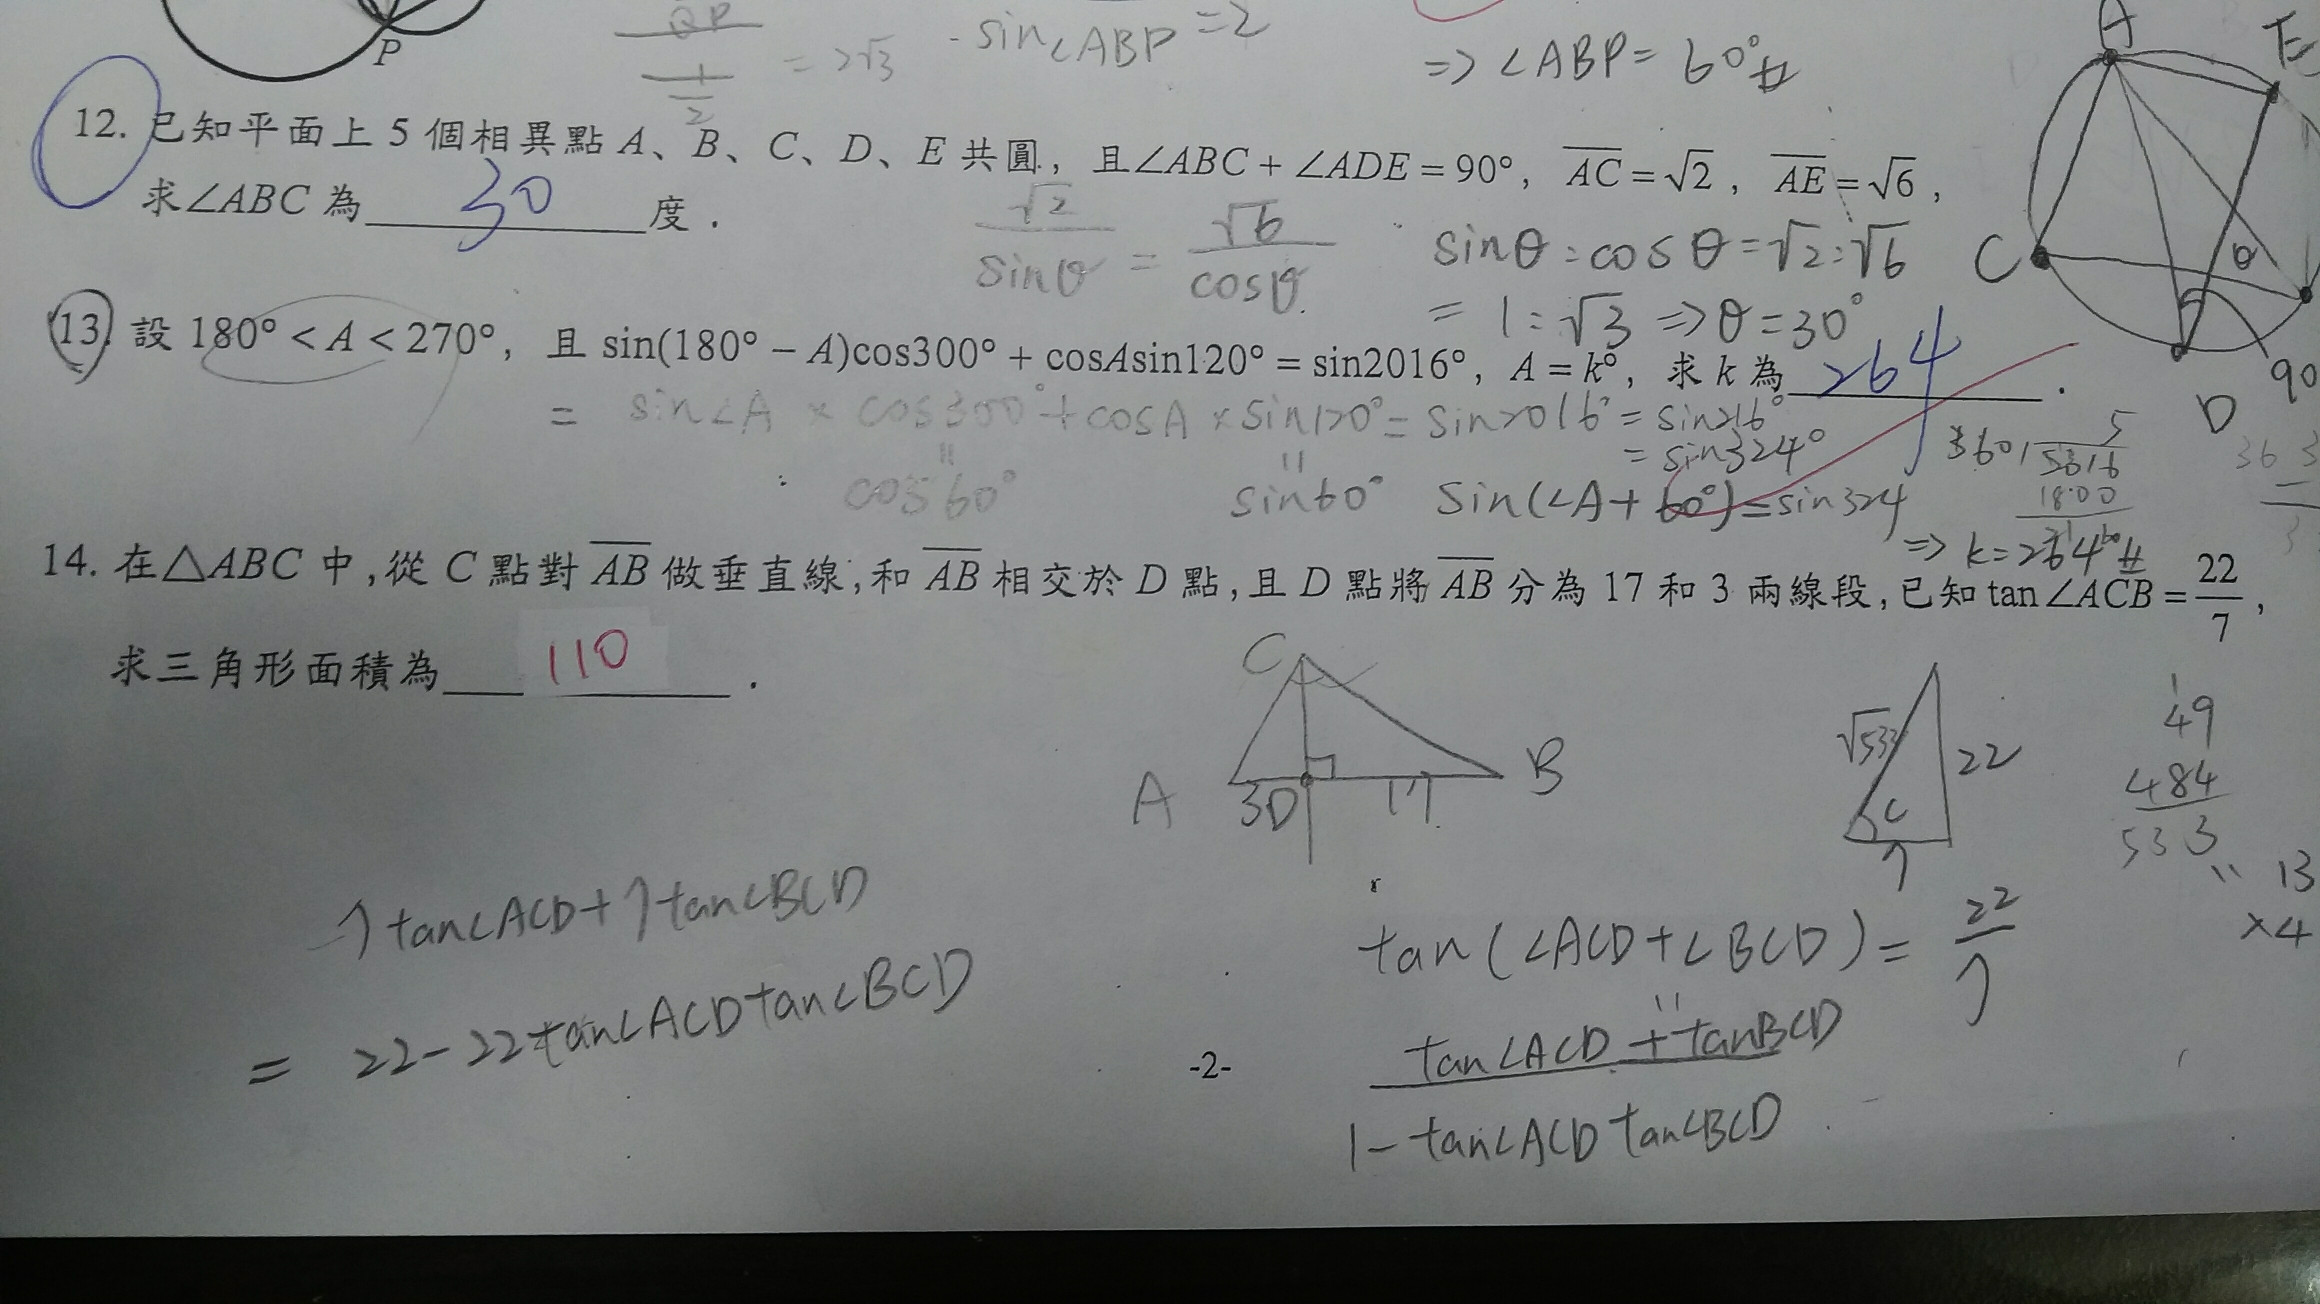 P
= 2√3
- sin∠ABP = 2
=> ∠ABP = 60°#
A
E
12. 已知平面上 5 個相異點 A、B、C、D、E 共圓，且∠ABC + ∠ADE = 90°，AC = √2，AE = √6，
求∠ABC 為 30 度．
√2/sinθ = √6/cosθ
sinθ : cosθ = √2 : √6
= 1 : √3 => θ = 30°
C
θ
D
90
13. 設 180° < A < 270°，且 sin(180° − A)cos300° + cosAsin120° = sin2016°，A = k°，求 k 為 264．
= sin∠A × cos300° + cosA × sin120° = sin2016° = sin216°
= sin324°
cos60°
sin60°
sin(∠A + 60°) = sin324
=> k = 264#
14. 在△ABC 中,從 C 點對 AB 做垂直線,和 AB 相交於 D 點,且 D 點將 AB 分為 17 和 3 兩線段,已知 tan∠ACB = 22/7，
求三角形面積為 110．
C
A
3
D
17
B
√533
22
C
7
49
484
533
13
×4
7tan∠ACD + 7tan∠BCD
= 22 - 22tan∠ACDtan∠BCD
tan(∠ACD + ∠BCD) = 22/7
tan∠ACD + tanBCD
1 - tan∠ACD tan∠BCD
-2-